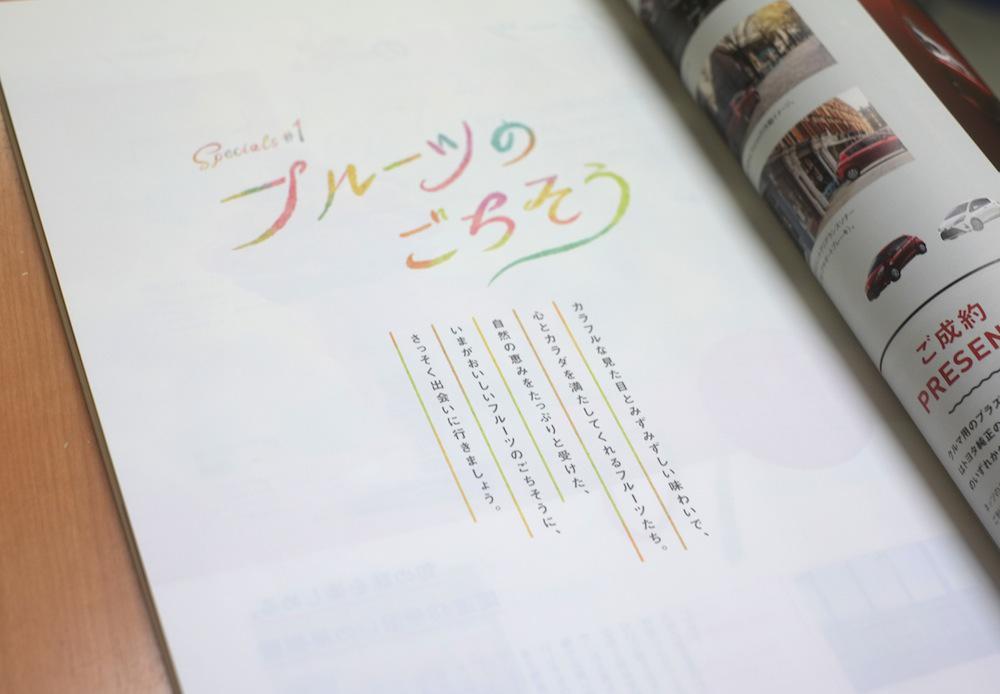 Specials #1
フルーツの
ごちそう
カラフルな見た目とみずみずしい味わいで、
心とカラダを満たしてくれるフルーツたち。
自然の恵みをたっぷりと受けた、
いまがおいしいフルーツのごちそうに、
さっそく出会いに行きましょう。
ご成約
PRESEN
クルマ用のプラス
はトヨタ純正の
のいずれか